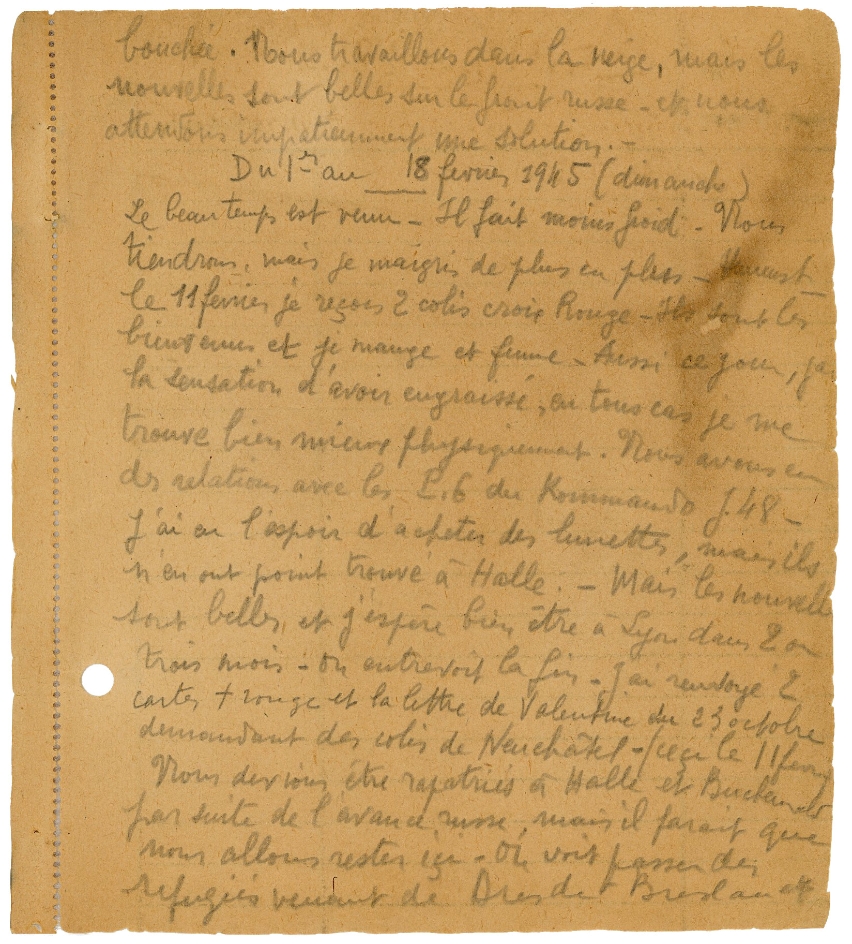 bouchée. Nous travaillons dans la neige, mais les
nouvelles sont belles sur le front russe - et nous
attendons impatiemment une solution. -
Du 1er au 18 février 1945 (dimanche)
Le beau temps est venu - Il fait moins froid - Nous
tiendrons, mais je maigris de plus en plus -
le 11 février je reçois 2 colis croix Rouge - Ils sont les
bienvenus et je mange et fume - Aussi ce jour, j'ai
la sensation d'avoir engraissé, en tous cas je me
trouve bien mieux physiquement. Nous avons eu
des relations avec les du Kommando J.48 -
j'ai eu l'espoir d'acheter des lunettes, mais ils
n'en ont point trouvé à Halle. - Mais les nouvelles
sont belles, et j'espère bien être à Lyon dans 2 ou
trois mois - on entrevoit la fin - j'ai renvoyé 2
cartes + rouge et la lettre de Valentine du 23 octobre
demandant des colis de Neuchâtel - (ceci le 11 février
Nous devions être rapatriés à Halle et Buchenwald
par suite de l'avance russe, mais il parait que
nous allons rester içi - On voit passer des
refugiés venant de Dresde Breslau etc